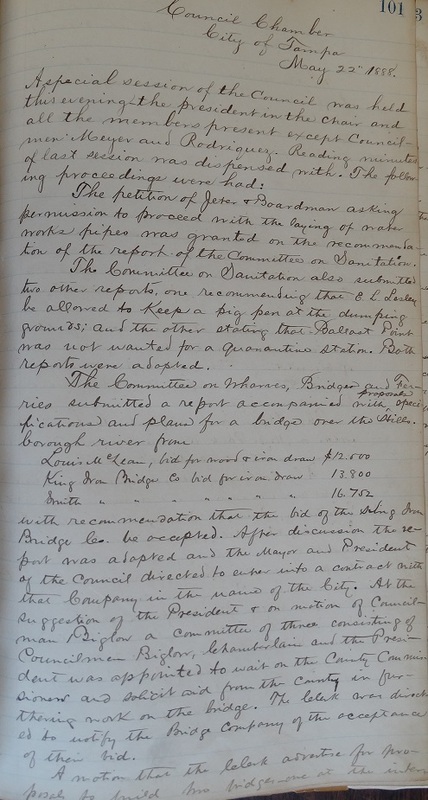 101
Council Chamber
City of Tampa
May 22" 1888.
A special session of the Council was held
this evening the president in the chair and
all the members present except Council-
men Meyer and Rodriguez. Reading minutes
of last session was dispensed with. The follow-
ing proceedings were had:
The petition of Jeter & Boardman asking
permission to proceed with the laying of water
works pipes was granted on the recommenda-
tion of the report of the Committee on Sanitation.
The Committee on Sanitation also submitted
two other reports, one recommending that E. L. Lesley
be allowed to keep a pig pen at the dumping
grounds; and the other stating that Ballast Point
was not wanted for a quarantine station. Both
reports were adopted.
The Committee on Wharves, Bridges and Fer-
ries submitted a report accompanied with proposals, speci-
fications and plans for a bridge over the Hills-
borough river from
Louis McLean, bid for wood & iron draw $12.000
King Iron Bridge Co bid for iron draw 13.800
Smith " " " " " " 16.752
with recommendation that the bid of the King Iron
Bridge Co. be accepted. After discussion the re-
port was adopted and the Mayor and President
of the Council directed to enter into a contract with
that Company in the name of the City. At the
suggestion of the President & on motion of Council-
man Biglow a committee of three consisting of
Councilmen Biglow, Chamberlain and the Presi-
dent was appointed to wait on the County Commis-
sioners and solicit aid from the county in fur-
thering work on the bridge. The clerk was direct-
ed to notify the Bridge Company of the acceptance
of their bid.
A motion that the clerk advertise for pro-
posals to build two bridges one at the inter